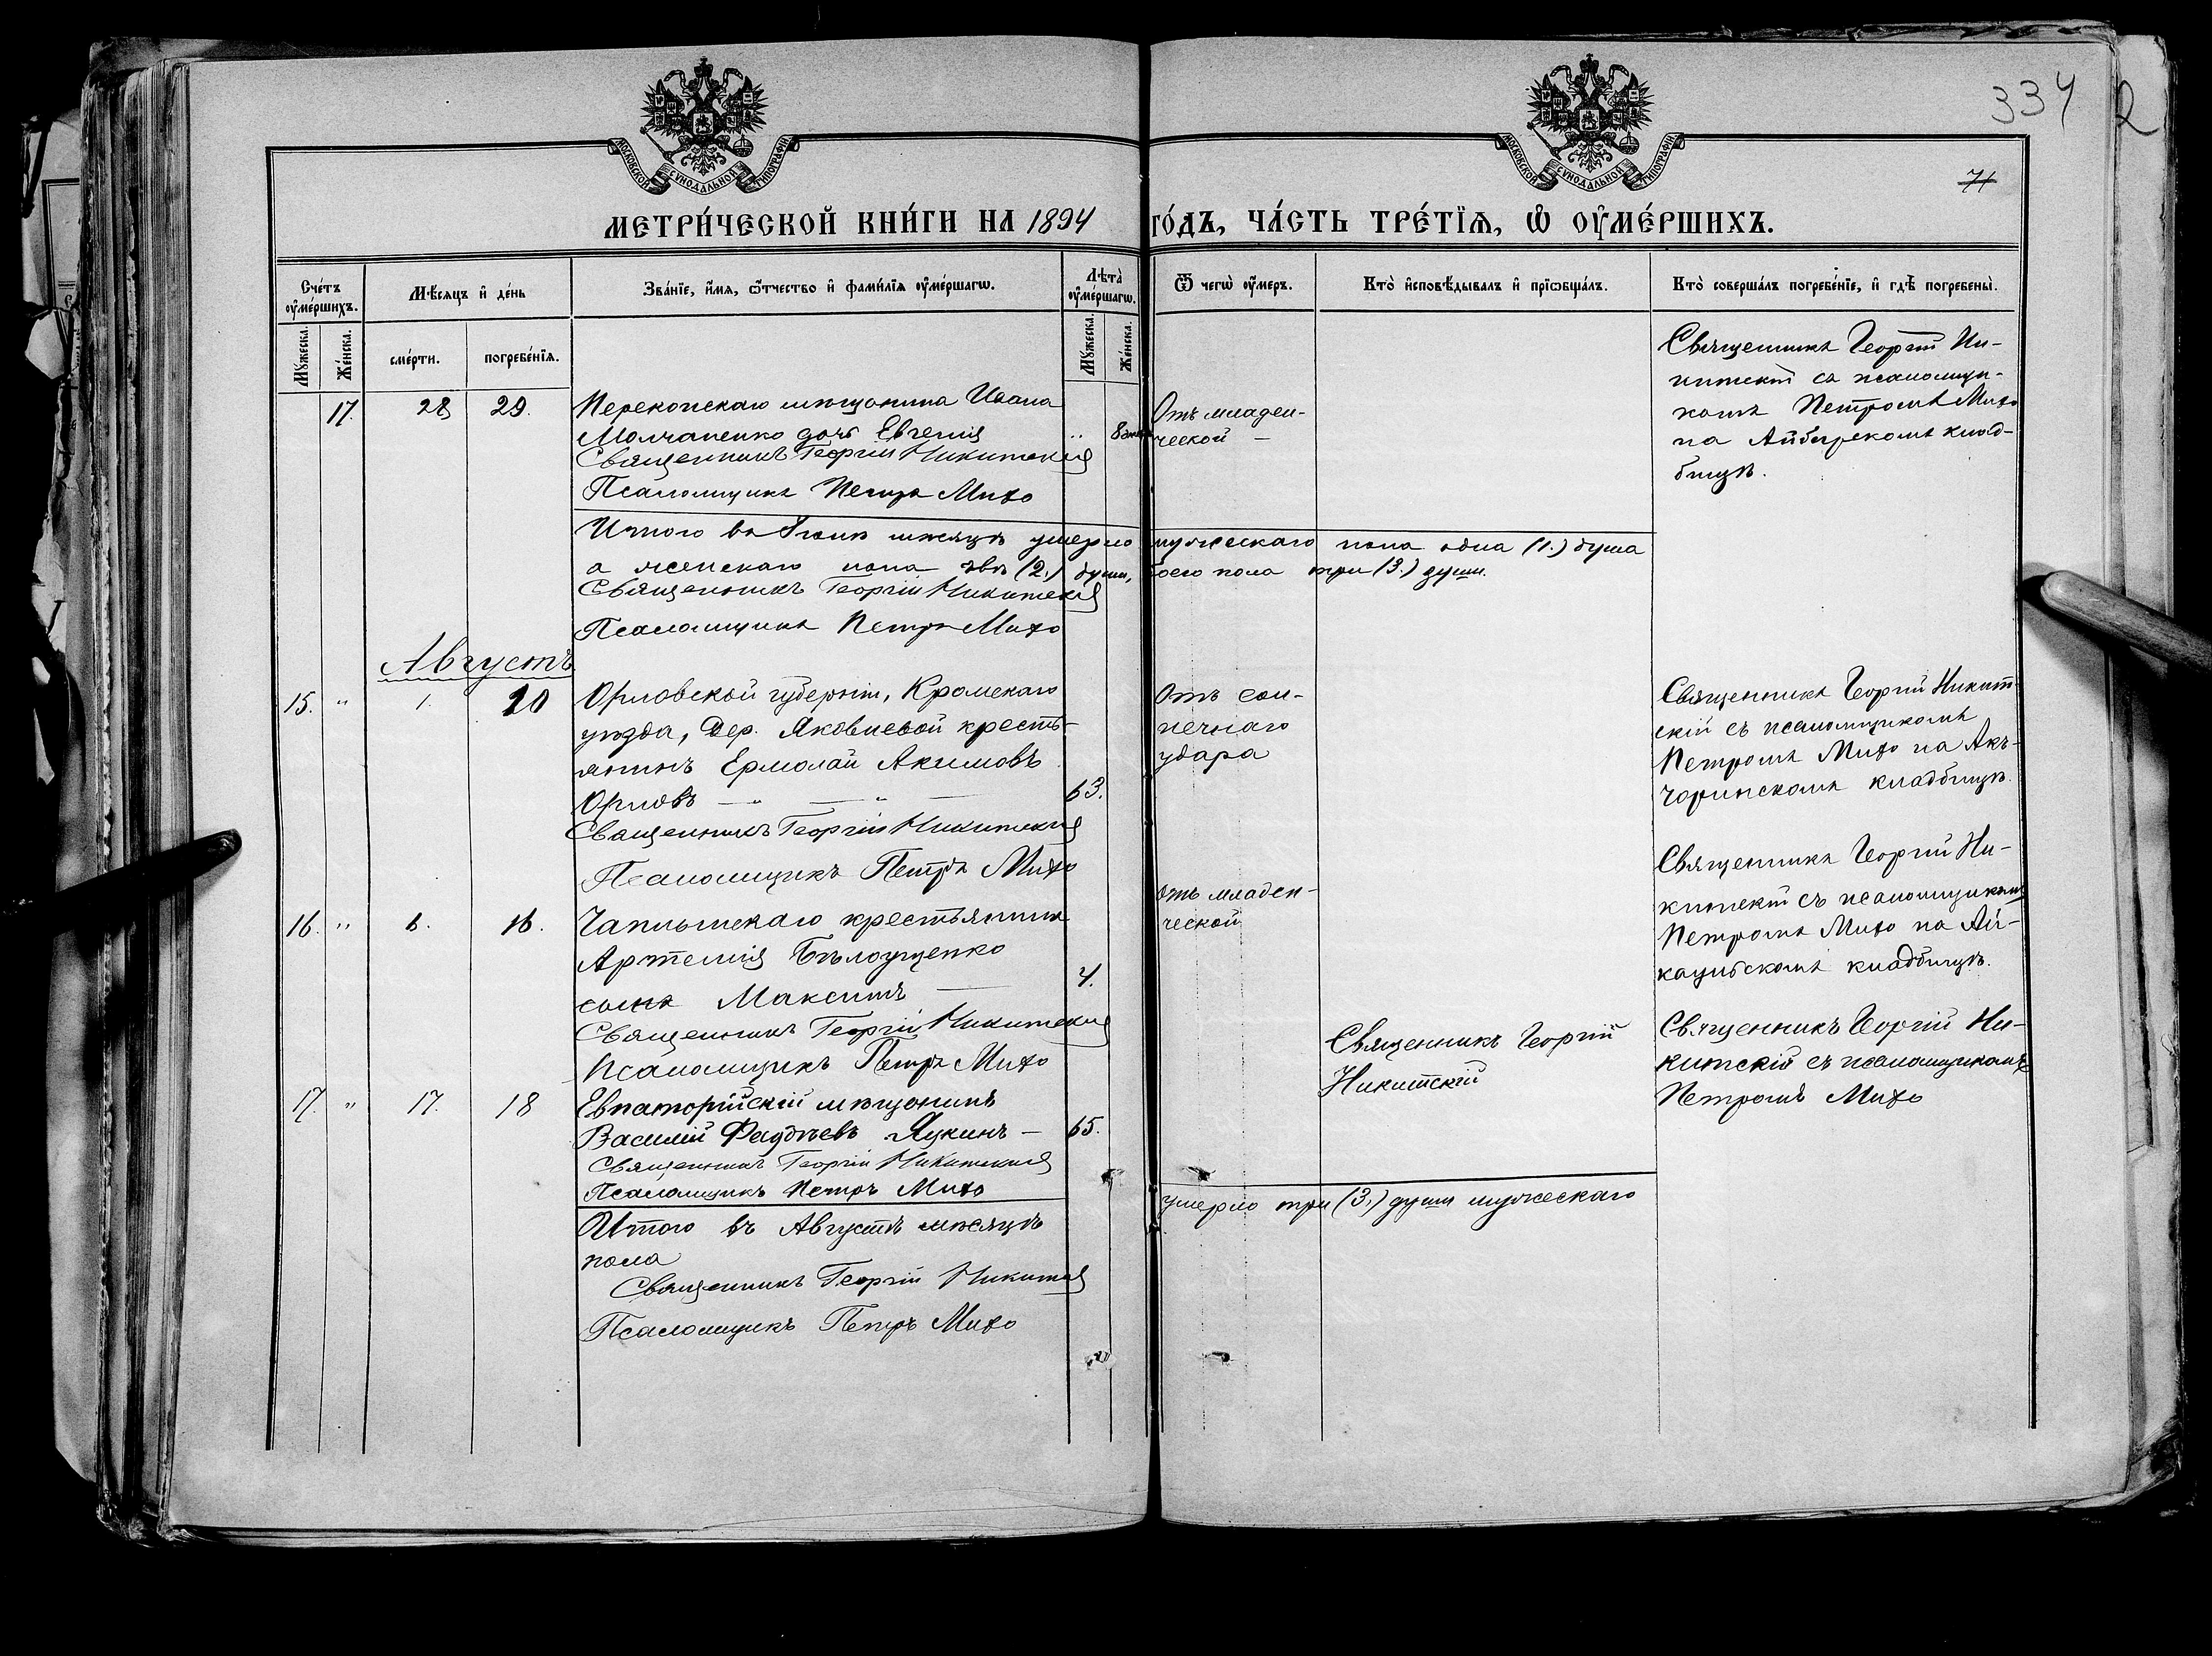 334
2
71
МОСКОВСКОЙ СУНОДАЛЬНОЙ ТИПОГРАФІИ
МОСКОВСКОЙ СУНОДАЛЬНОЙ ТИПОГРАФІИ
МЕТРИ́ЧЕСКОЙ КНИ́ГИ НА 1894 ГО́ДЪ, ЧА́СТЬ ТРЕ́ТЇѦ, Ѡ҆ ОУ҆МЕ́РШИХЪ.
Сче́тъ оу҆ме́ршихъ.
Мѣ́сѧцъ и҆ де́нь
Зва́нїе, и҆́мѧ, ѻ҆́тчество и҆ фами́лїѧ оу҆ме́ршагѡ.
Лѣта̀ оу҆ме́ршагѡ.
Ѿ чегѡ̀ оу҆́меръ.
Кто̀ и҆сповѣ́дывалъ и҆ прїѡбща́лъ.
Кто̀ соверша́лъ погребе́нїе, и҆ гдѣ̀ погребены̀.
Му́жеска.
Же́нска.
сме́рти.
погребе́нїѧ.
Му́жеска.
Же́нска.
17. 28 29. Перекопскаго мѣщанина Ивана
Молчаненко дочь Евгенія „
Священникъ Георгій Никитскій
Псаломщикъ Петръ Михо
Отъ младен-
ческой –
Священникъ Георгій Ни-
китскій съ псаломщи-
комъ Петромъ Михо
на Айбарскомъ клад-
бищѣ.
Итого въ Іюлѣ мѣсяцѣ умерло мужескаго пола одна (1.) душа
а женскаго пола двѣ (2.) души, обоего пола три (3.) души.
Священникъ Георгій Никитскій
Псаломщикъ Петръ Михо
Августъ
15. „ 1. 20 Орловской губерніи, Кромскаго
уѣзда, Дер. Яковлевой кресть-
янинъ Ермолай Акимовъ
Орловъ — „ — „ — 63.
Священникъ Георгій Никитскій
Псаломщикъ Петръ Михо
Отъ сол-
нечнаго
удара
Священникъ Георгій Никит-
скій съ псаломщикомъ
Петромъ Михо на Акъ-
чоринскомъ кладбищѣ.
16. „ 6. 16. Чаплынскаго крестьянина
Артемія Бѣлоущенко
сынъ Максимъ — 4.
Священникъ Георгій Никитскій
Псаломщикъ Петръ Михо
отъ младен-
ческой
Священникъ Георгій Ни-
китскій съ псаломщикомъ
Петромъ Михо на Ай-
каульскомъ кладбищѣ.
17. „ 17. 18 Евпаторійскій мѣщанинъ
Василій Фаддѣевъ Лукинъ – 65.
Священникъ Георгій Никитскій
Псаломщикъ Петръ Михо
Священникъ Георгій
Никитскій
Священникъ Георгій Ни-
китскій съ псаломщикомъ
Петромъ Михо
Итого въ Августѣ мѣсяцѣ умерло три (3.) души мужескаго
пола
Священникъ Георгій Никитскій
Псаломщикъ Петръ Михо